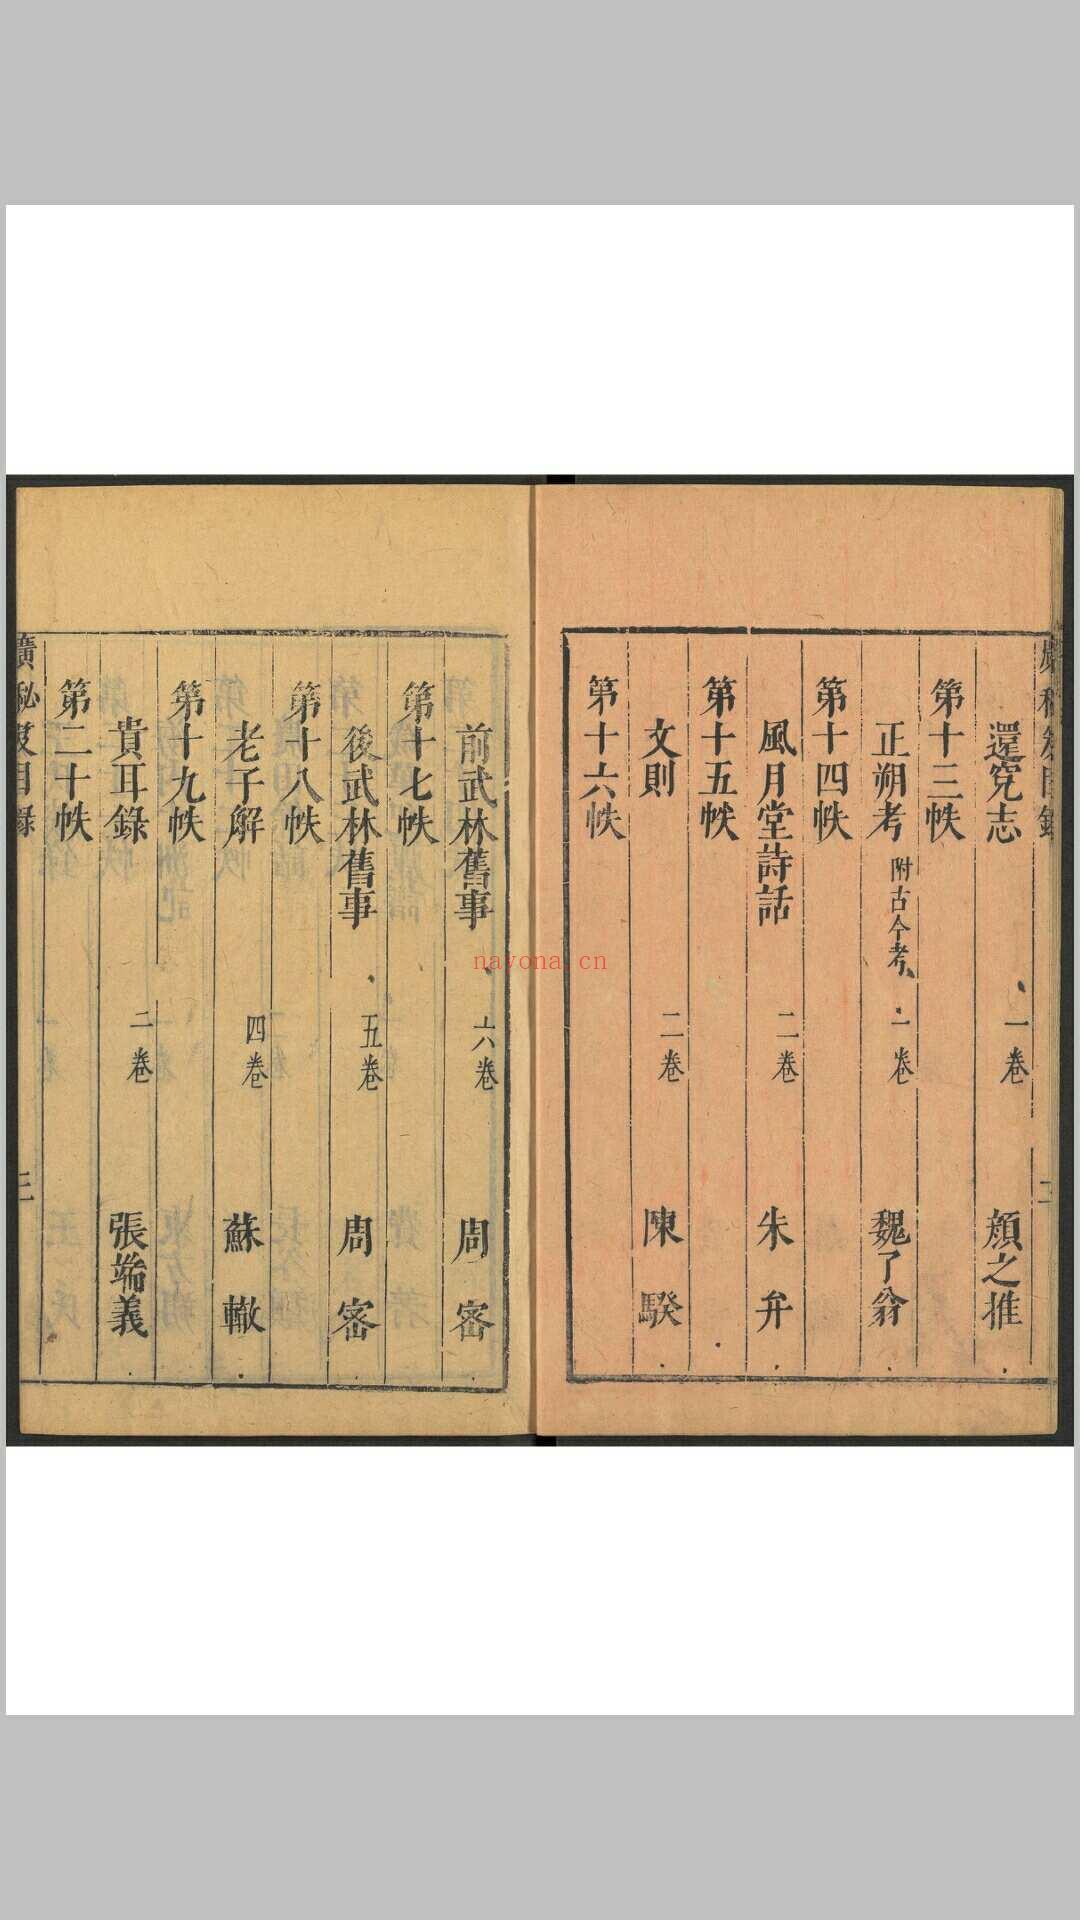 還冤志 一卷 顏之推
第十三帙
正朔考 附古今考 一卷 魏了翁
第十四帙
風月堂詩話 二卷 朱弁
第十五帙
文則 二卷 陳騤
第十六帙
前武林舊事 六卷 周密
第十七帙
後武林舊事 五卷 周密
第十八帙
老子解 四卷 蘇轍
第十九帙
貴耳錄 二卷 張端義
第二十帙
廣秘笈目錄 三
nayona.cn